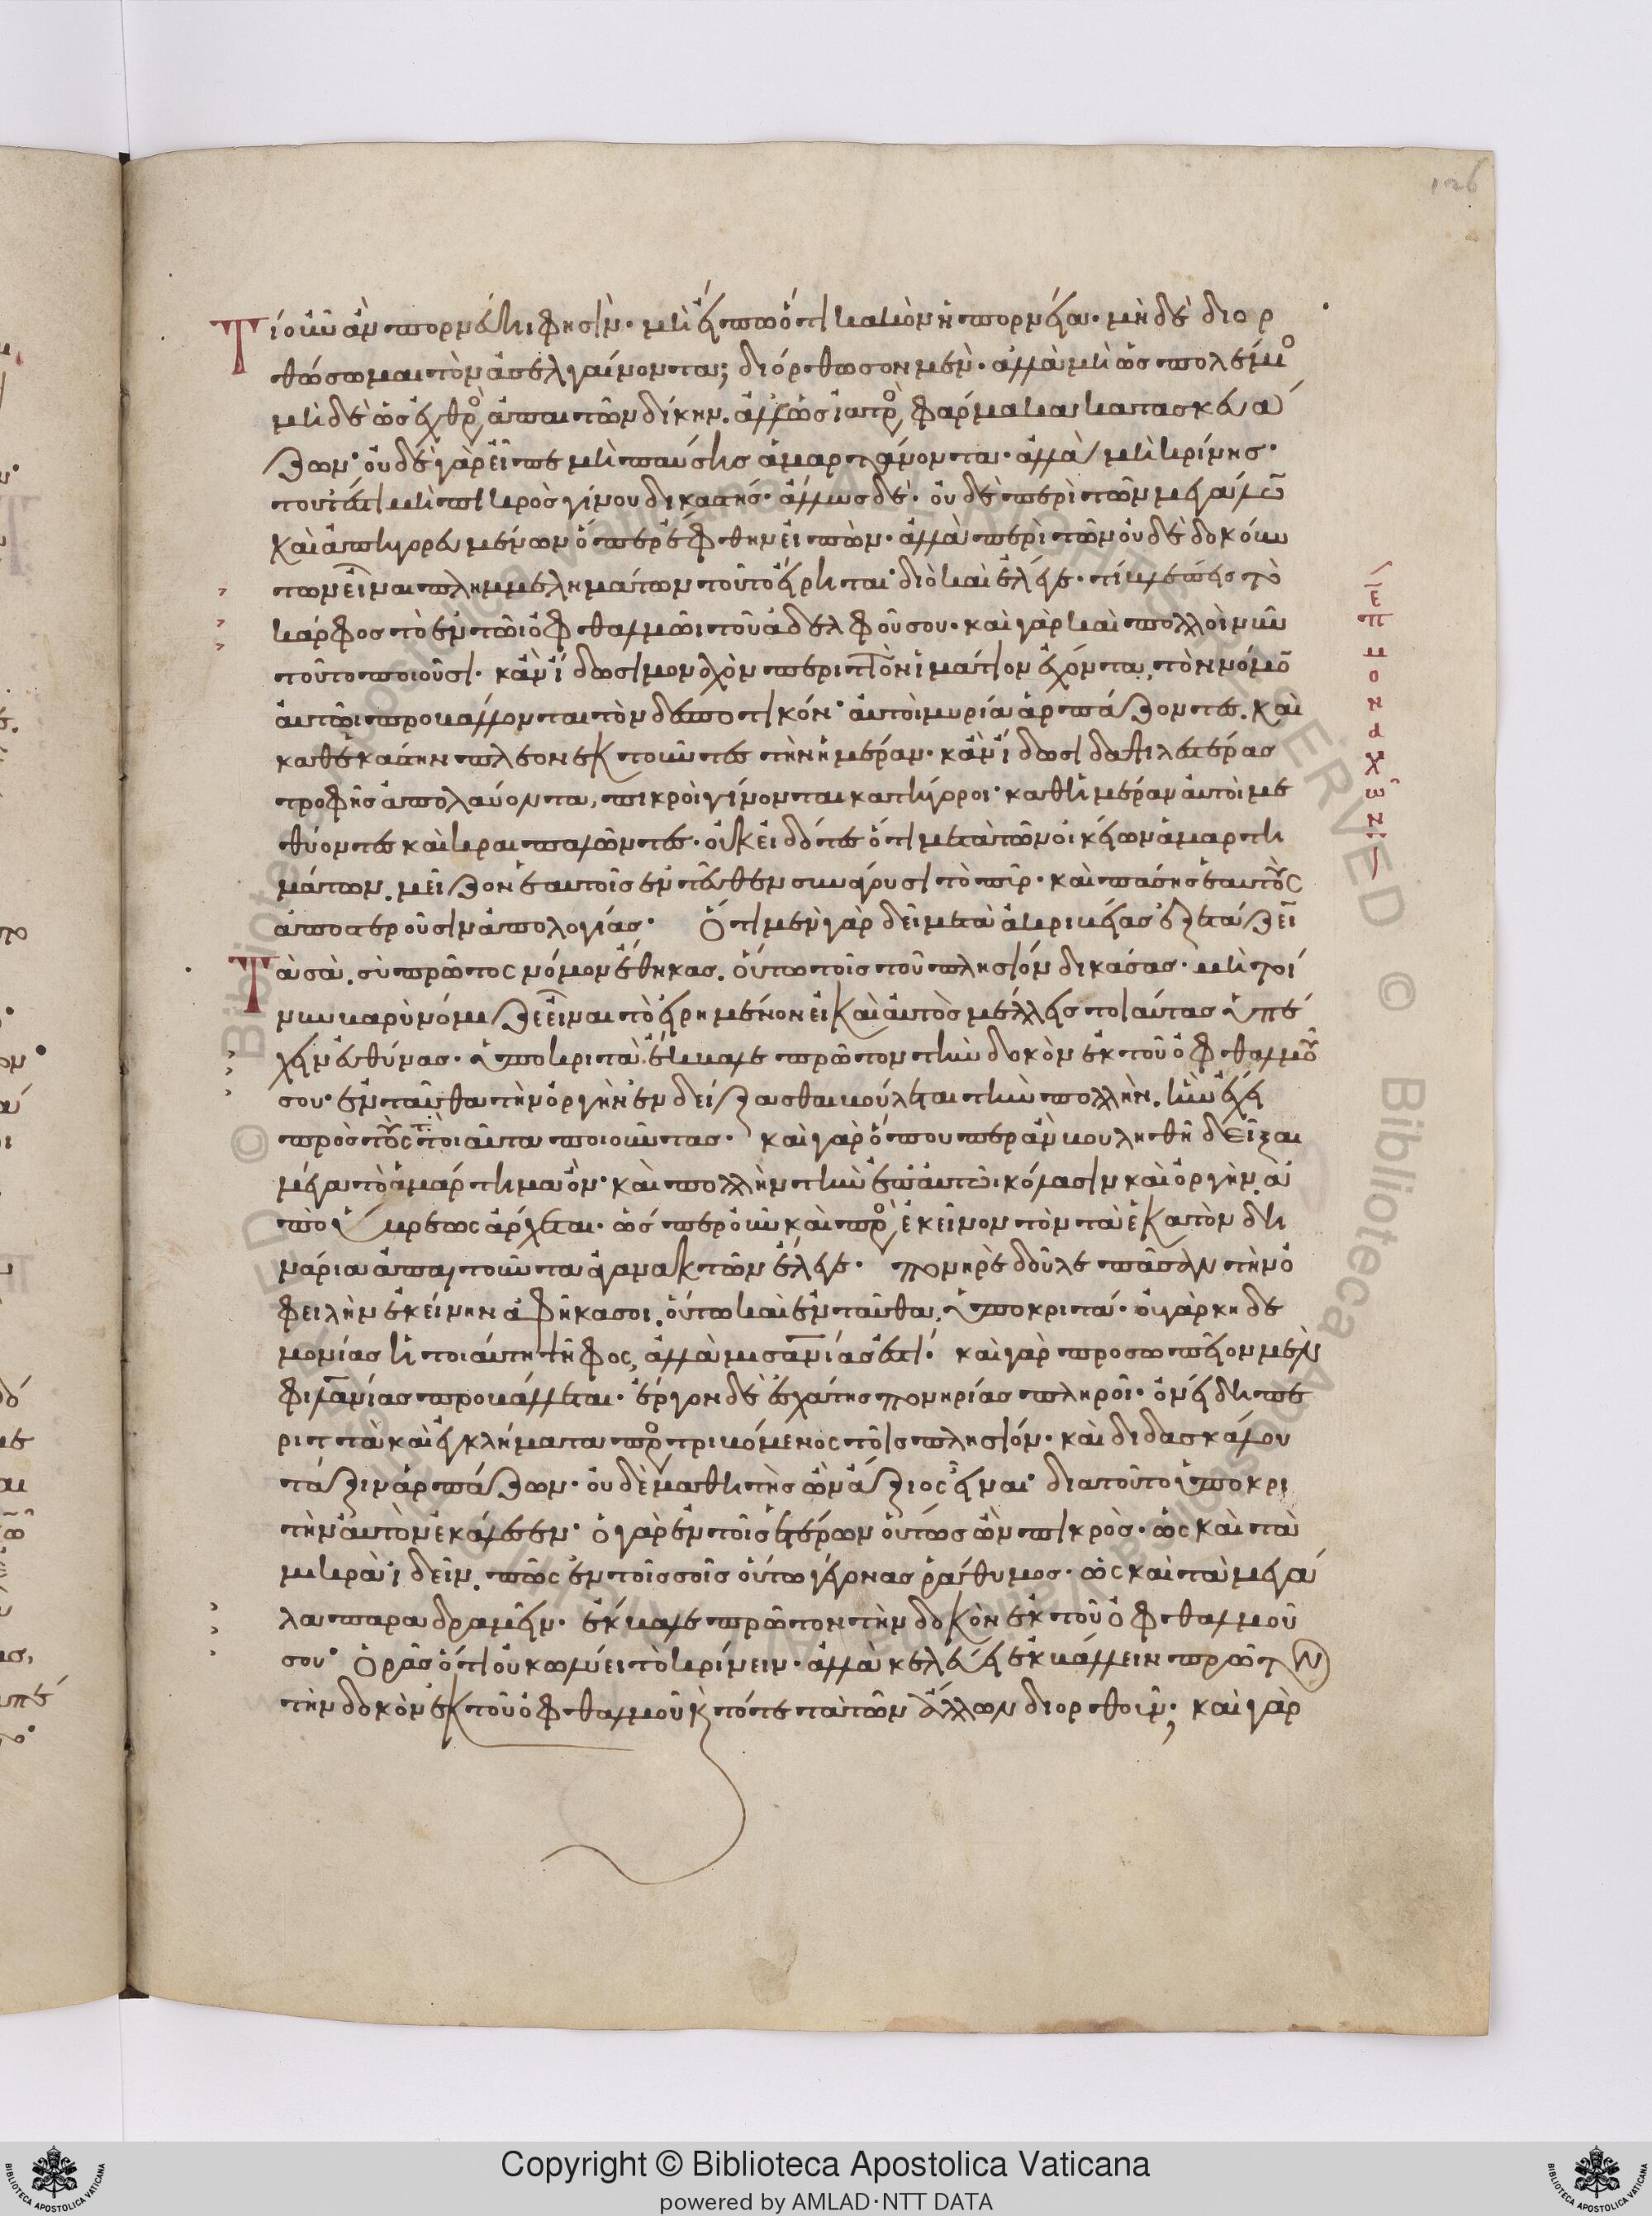 126
Τί οὖν ἂν πορνεύηι φησίν· μὴ εἴπω ὅτι κακὸν ἡ πορνεία· μὴ δὲ διορ
θώσωμαι τὸν ἀσελγαίνοντα; διόρθωσον μέν· ἀλλὰ μὴ ὡς πολέμιο
μὴ δὲ ὡς ἐχθρὸς ἀπαιτῶν δίκην. ἀλλ' ὡς ἰατρὸς φάρμακα κατασκευά
ζων· οὐδὲ γὰρ εἶπε μὴ παύσηις ἁμαρτάνοντα· ἀλλὰ μὴ κρίνης·
τουτέστι μὴ πικρὸς γίνου δικαστής· ἄλλως δὲ· οὐδὲ περὶ τῶν μεγάλων
καὶ ἀπηγορευμένων ὅπερ ἔφθην εἰπών· ἀλλὰ περὶ τῶν οὐδὲ δοκούν
των εἶναι πλημμελημάτων τοῦτο εἴρηται· διὸ καὶ ἔλεγε· τί βλέπεις τὸ
κάρφος τὸ ἐν τῶι ὀφθαλμῶι τοῦ ἀδελφοῦ σου· καὶ γὰρ καὶ πολλοὶ νῦν
τοῦτο ποιοῦσι· κἂν ἴδωσι μοναχὸν περιττὸν ἱμάτιον ἔχοντα, τὸν νόμον
αὐτῶι προβάλλονται τὸν δεσποτικόν· αὐτοὶ μυρία ἁρπάζοντες. καὶ
καθ' ἑκάστην πλεονεκτοῦντες τὴν ἡμέραν· κἂν ἴδωσι δαψιλεστέρας
τροφῆς ἀπολαύοντα, πικροὶ γίνονται κατήγοροι· καθ' ἡμέραν αὐτοὶ με
θύοντες καὶ κραιπαλῶντες· οὐκ εἰδότες ὅτι μετὰ τῶν οἰκείων ἁμαρτη
μάτων. μεῖζον ἑαυτοῖς ἐντεῦθεν συνάγουσι τὸ πῦρ· καὶ πάσης ἑαυτοὺς
ἀποστεροῦσιν ἀπολογίας· Ὅτι μὲν γὰρ δεῖ μετὰ ἀκριβείας ἐξετάζειν
Τὰ σὰ. σὺ πρῶτος νόμον ἔθηκας. οὕτω τοῖς τοῦ πλησίον δικάσας· μὴ τοί
νυν βαρὺ νόμιζε εἶναι τὸ εἰρημένον εἰ καὶ αὐτὸς μέλλεις τοιαύτας ὑπέ
χειν εὐθύνας· ὑποκριτὰ ἔκβαλε πρῶτον τὴν δοκὸν ἐκ τοῦ ὀφθαλμοῦ
σου· ἐνταῦθα τὴν ὀργὴν ἐνδείξασθαι βούλεται τὴν πολλὴν. ἣν ἔχει
πρὸς τοὺς τὰ τοιαῦτα ποιοῦντας· καὶ γὰρ ὅπουπερ ἂν βουληθῆ δεῖξαι
μέγα τὸ ἁμάρτημα ὄν· καὶ πολλὴν τὴν ἐπ' αὐτῶι κόλασιν καὶ ὀργὴν. ἀ
πὸ ὕβρεως ἄρχεται· ὥσπερ οὖν καὶ πρὸς ἐκεῖνον τὸν τὰ ἑκατὸν δη
νάρια ἀπαιτοῦντα ἀγανακτῶν ἔλεγε· πονηρὲ δοῦλε πᾶσαν τὴν ὀ
φειλὴν ἐκείνην ἀφῆκά σοι. οὕτω καὶ ἐνταῦθα. ὑποκριτά· οὐ γὰρ κηδε
μονίας ἡ τοιαύτη ψῆφος, ἀλλὰ μισανίας ἐστί· καὶ γὰρ προσωπεῖον μὲν
φιλανίας προβάλλεται· ἔργον δὲ ἐσχάτης πονηρίας πληροῖ· ὀνείδη πε
ριττὰ καὶ ἐγκλήματα προστριβόμενος τοῖς πλησίον· καὶ διδασκάλου
τάξιν ἁρπάζων· οὐδὲ μαθητὴς ὢν ἄξιος εἶναι· διὰ τοῦτο ὑποκρι
τὴν αὐτὸν ἐκάλεσεν· ὁ γὰρ ἐν τοῖς ἑτέρων οὕτως ὢν πικρὸς· ὡς καὶ τὰ
μικρὰ ἰδεῖν. πῶς ἐν τοῖς σοῖς οὕτω γέγονας ῥάθυμος· ὡς καὶ τὰ μεγά
λα παραδραμεῖν· ἔκβαλε πρῶτον τὴν δοκὸν ἐκ τοῦ ὀφθαλμοῦ
σου· Ὁρᾶς ὅτι οὐ κωλύει τὸ κρίνειν· ἀλλὰ κελεύει ἐκβάλλειν πρῶτον
τὴν δοκὸν ἐκ τοῦ ὀφθαλμοῦ κ τότε τὰ τῶν ἄλλων διορθοῦν; καὶ γὰρ